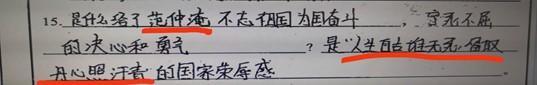 15. 是什么给了范仲淹不忘祖国为国奋斗，宁死不屈
的决心和勇气？是“人生自古谁无死留取
丹心照汗青”的国家荣辱感